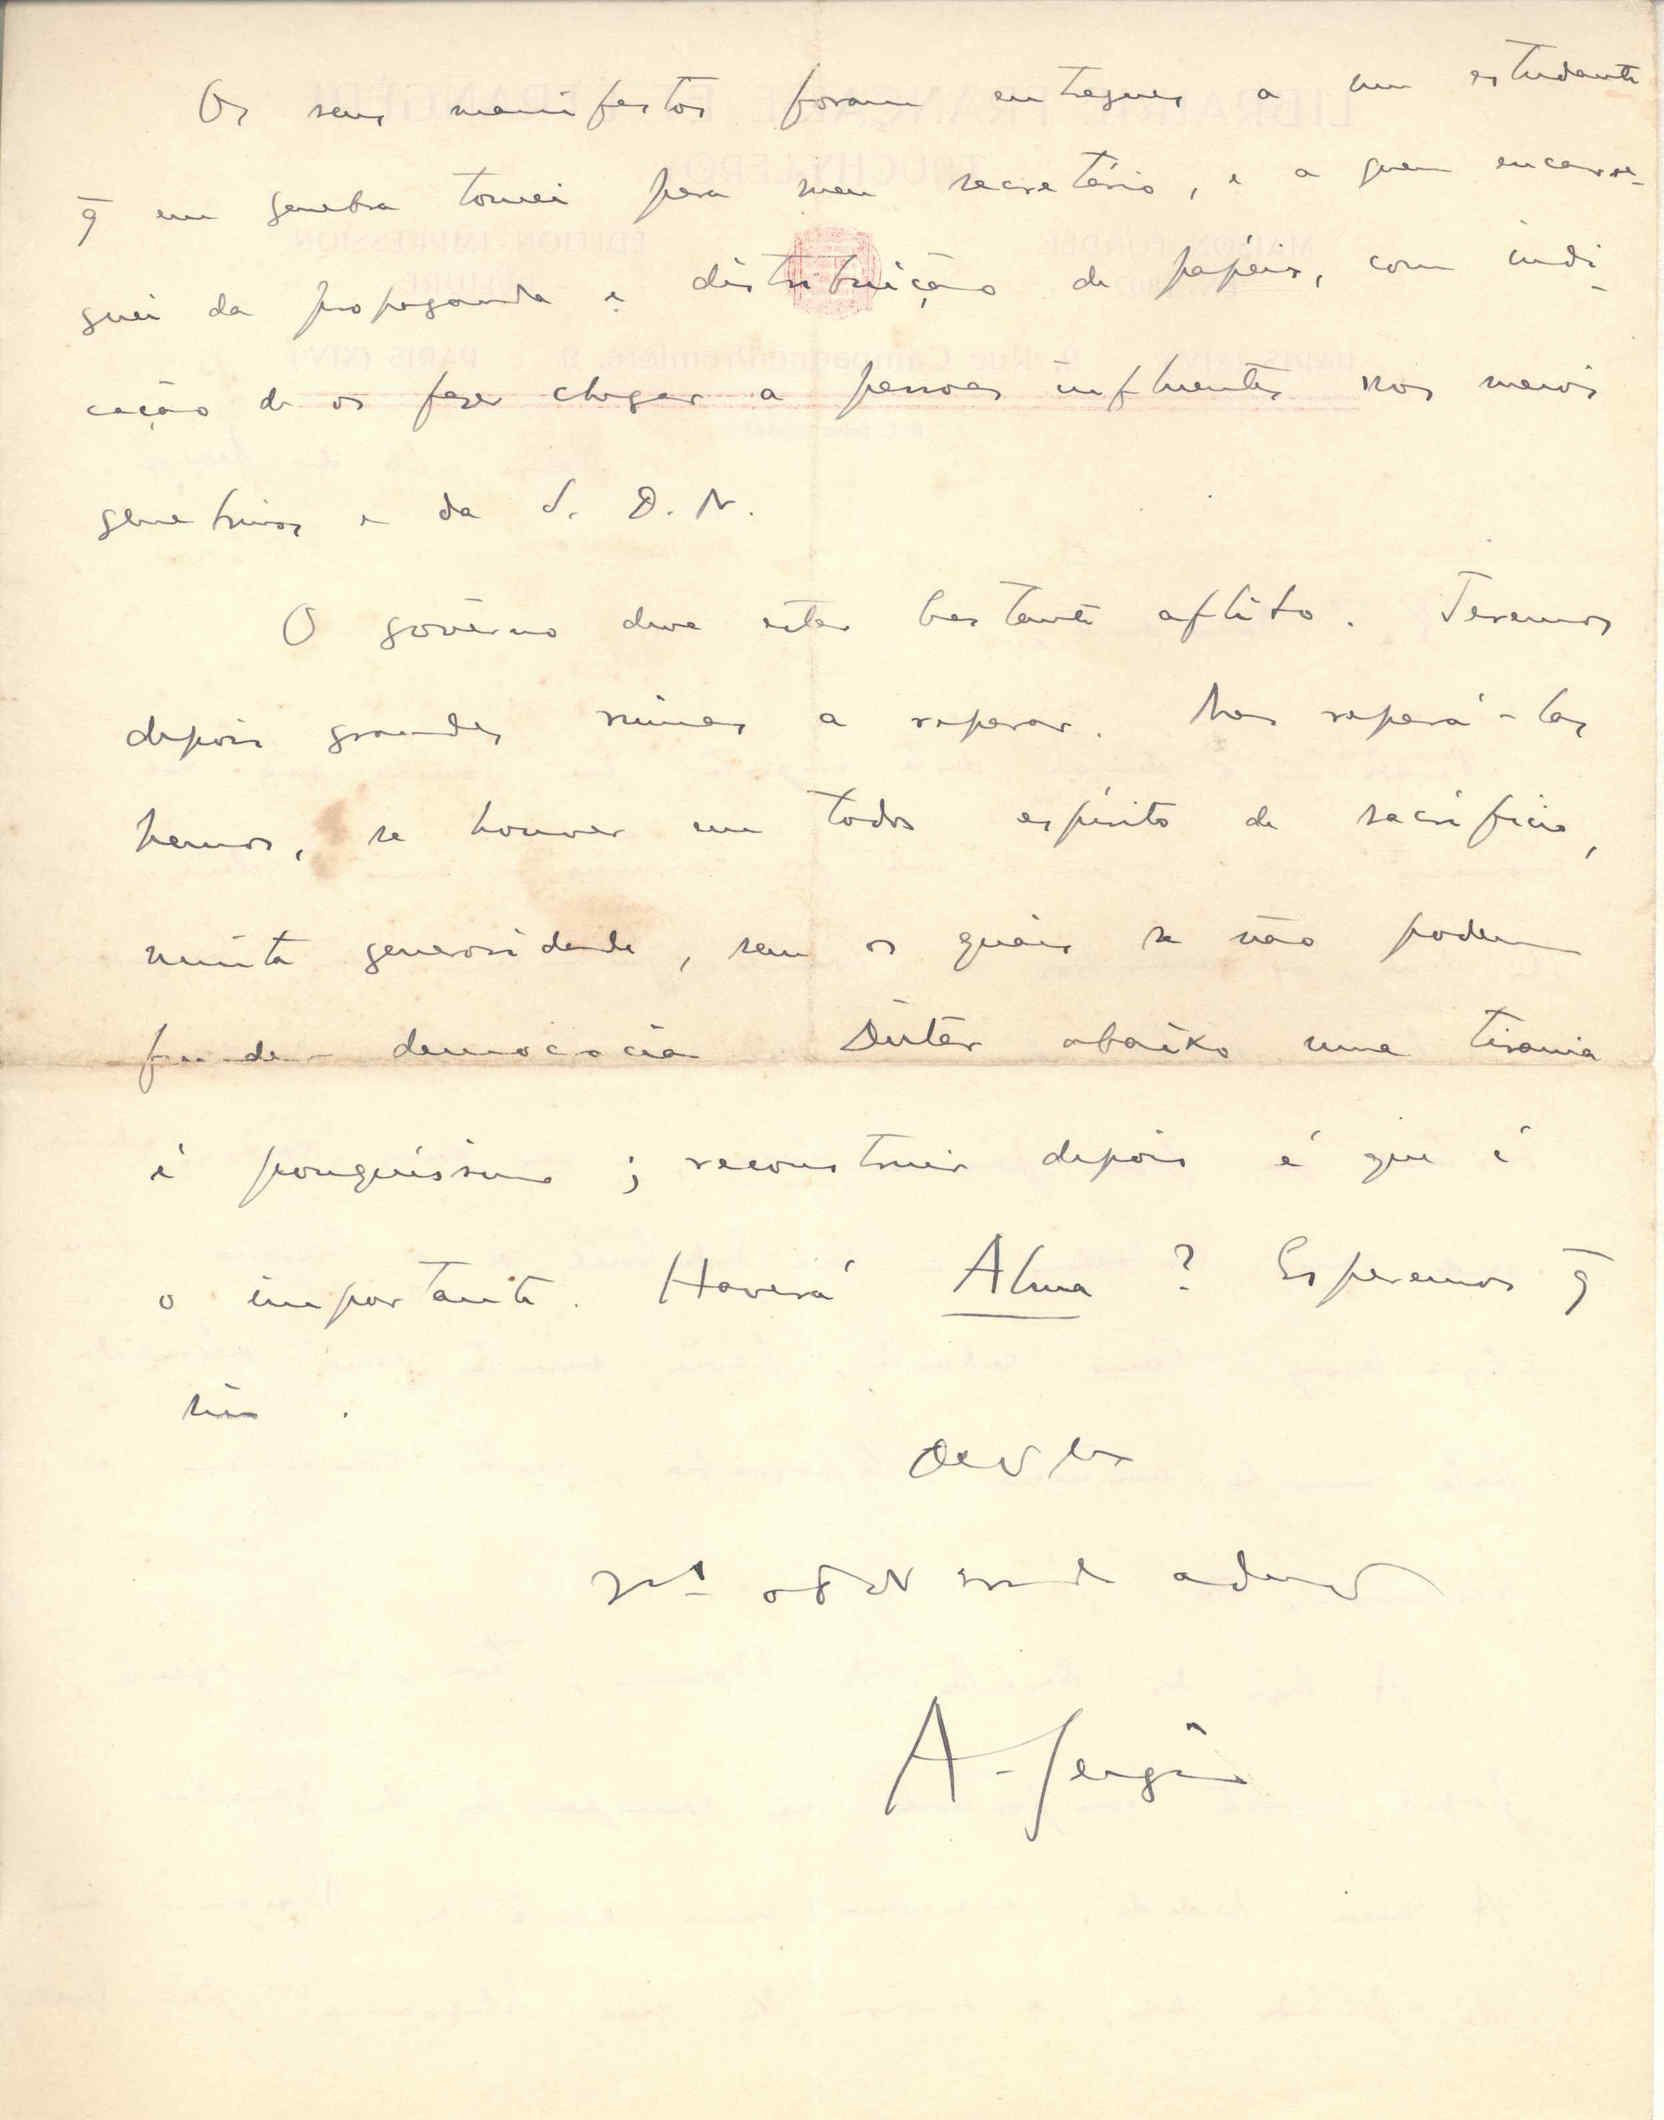 Os seus manifestos foram entregues a um estudante
q̄ em genebra tomei para meu secretário, e a quem encarre-
guei da propaganda e distribuição de papéis, com indi-
cação de os fazer chegar a pessoas influentes nos meios
genebrinos e da S. D. N.
O govêrno deve estar bastante aflito. Teremos
depois grandes ruínas a reparar. Mas repará-las
hemos, se houver em todos espírito de sacrifício,
muita generosidade, sem os quais se não podem
fundar democracia Deitar abaixo uma tirania
é pouquíssimo; reconstruir depois é que é
o importante. Haverá Alma? Esperemos q̄
sim.
A. Sérgio